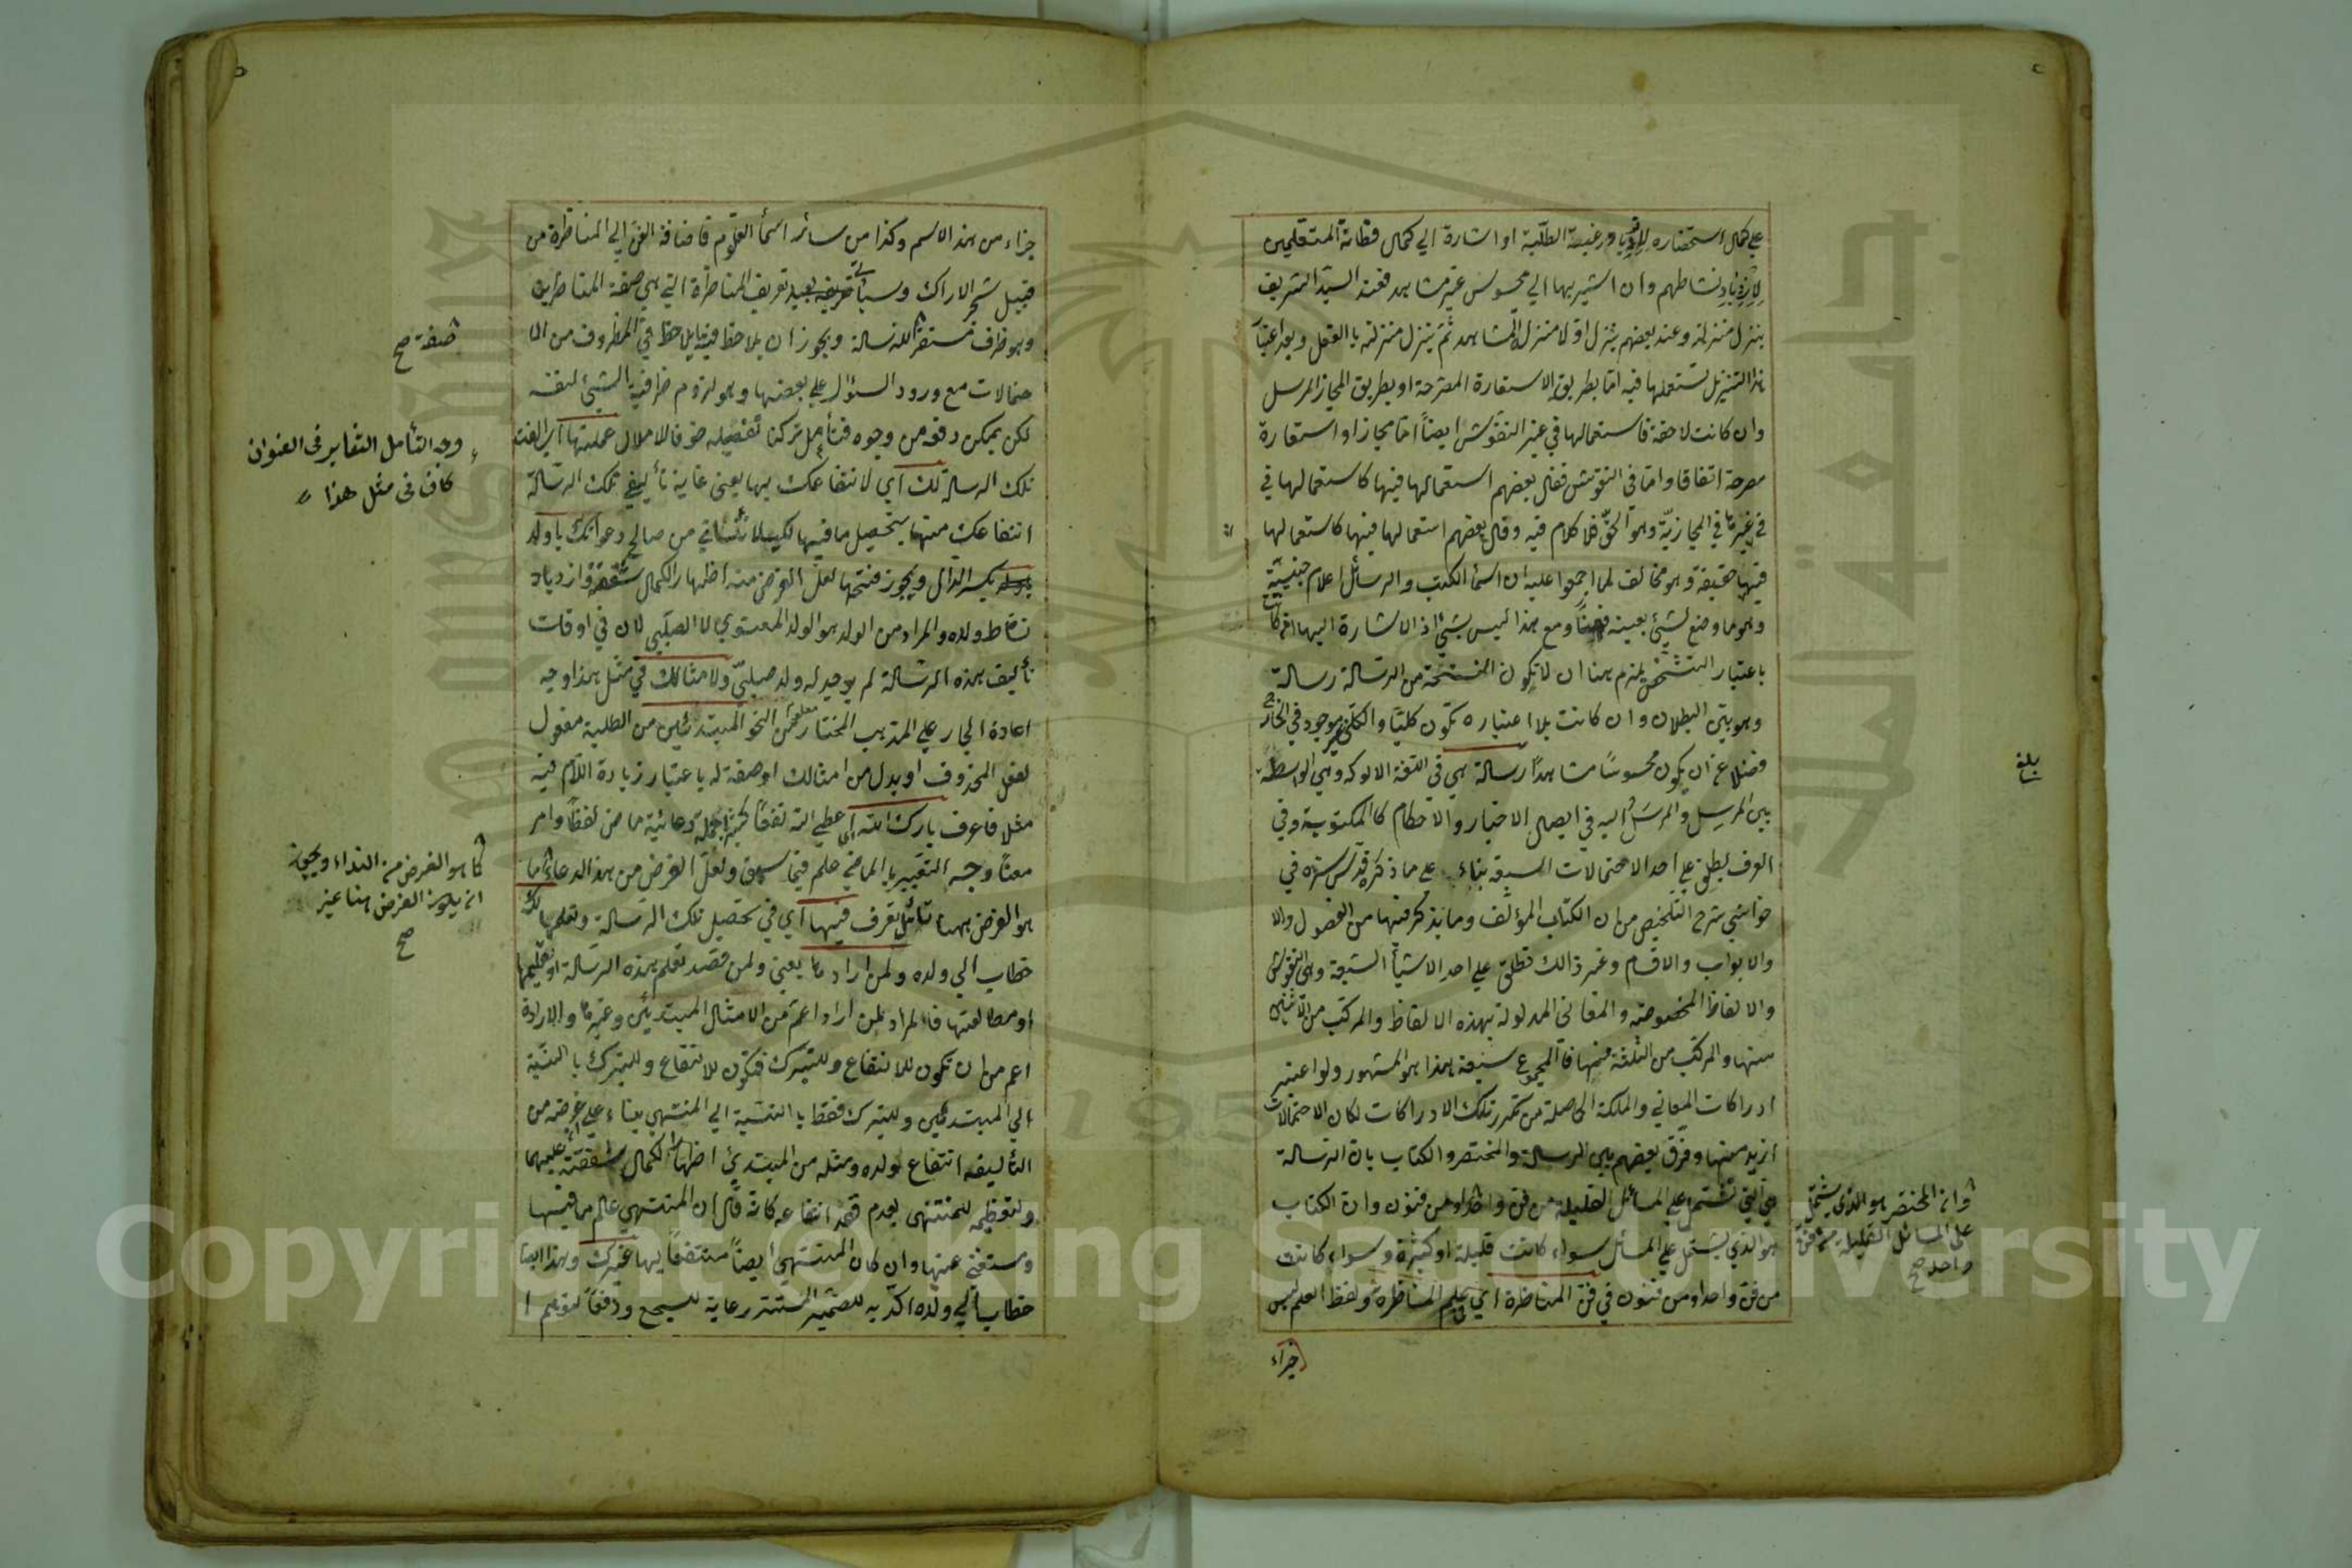 علي كمال استحضاره ورغبة الطلبة او اشارة الي كمال فطانة المتعلمين
لازدياد نشاطهم وان اشير بها الي محسوس غير مشاهد فعند السيد الشريف
ينزل منزلته وعند بعضهم ينزل اولا منزل المشاهد ثم ينزل منزلته بالعقل وبعد اعتبار
هذا التنزيل تستعملها فيه اما بطريق الاستعارة المصرحة او بطريق المجاز المرسل
وان كانت لاحقة فاستعمالها في غير النقوش ايضاً اما مجازا او استعارة
مصرحة اتفاقا واما في النقوش فقال بعضهم استعمالها فيها كاستعمالها في
في غيرها في المجازية وهو الحق فلا كلام فيه وقال بعضهم استعمالها فيها كاستعمالها
فيها حقيقة وهو مخالف لما اجمعوا عليه ان اسمأ الكتب والرسائل اعلام جنسية
وهو ما وضع لشيئ بعينه ومع هذا ليس بشيئ اذ الاشارة اليها
باعتبار التشخص يلزم هنا ان لا تكون النسخة من الرسالة رسالة
وهو بين البطلان وان كانت بلا اعتباره تكون كليا والكلي موجود في الخارج
فضلا عن ان يكون محسوسًا مشاهدًا رسالة هي في اللغة الالوكه وهي الواسطة
بين المرسِل والمرسَل اليه في ايصال الاخبار والاحكام كالمكتوبة وفي
العرف يطلق علي احد الاحتمالات السبعة بناء علي ما ذكره قدس سره في
حواشي شرح التلخيص من ان الكتاب المؤلف وما يذكر فيها من الفصول والا
والابواب والاقسام وغير ذالك تطلق علي احد الاشيأ السبعة وهي النقوش
والالفاظ المخصوصة والمعاني المدلولة بهذه الالفاظ والمركب من الاثنين
منها والمركب من الثلثة منها فالمجموع سبعة هذا هو المشهور ولو اعتبر
ادراكات المعاني والملكة الحاصلة من تكرر تلك الادراكات لكان الاحتمالات
ازيد منها وفرق بعضهم بين الرسالة والمختصر والكتاب بان الرسالة
هي التي تشتمل علي المسائل القليلة من فن واحد او من فنون وان الكتاب
هو الذي يشتمل علي المسائل سواء كانت قليلة او كثيرة وسواء كانت
من فن واحد او من فنون في فن المناظرة اي علم المناظرة ولفظ العلم ليس
جزاء
بلغ
وان المختصر هو الذي يشتمل
على المسائل القليلة من فن
واحد صح
جزاء من هذا الاسم وكذا من سائر اسمأ العلوم فاضافة الفن الي المناظرة من
قبيل شجر الاراك وسيأتي تعريف المناظرة التي هي صفة المناظرين
وهو ظرف مستقر للرسالة ويجوز ان يلاحظ فيه ما يلاحظ في المظروف من الا
حتمالات مع ورود السؤال علي بعضها وهو لزوم ظرفية الشيئ لنفسه
لكن يمكن دفعه من وجوه فتأمل تركنا تفصيله خوفا للاملال عملتها اي الفت
تلك الرسالة لك اي لانتفاعك بها يعني غاية تأليفي تلك الرسالة
انتفاعك منها بتحصيل ما فيها من صالح دعواتك يا ولد
بكسر الدال ويجوز فتحها لعل الغرض منه اظهار الكمال شفقة وازدياد
نشاط ولده والمراد من الولد هو الولد المعنوي لا الصلبي لان في اوقات
تأليف هذه الرسالة لم يوجد له ولد صلبيّ ولامثالك في مثل هذا وجه
اعادة الجار علي المذهب المختار معلوم من النحو المبتدئين من الطلبة مفعول
لفعل المحذوف او بدل من امثالك او صفة له باعتبار زيادة اللام فيه
مثلا فاعرف بارك الله اي عطي الله نفعًا كثيرا جملة دعائية ماض لفظًا وامر
معناً وجه التعبير بالماضي علم فيما سبق ولعل الغرض من هذا الدعاء ما
هو الغرض بهنا تأمل تعرف فيها اي في تحصيل تلك الرسالة وتعلمها لك
خطاب الي ولده ولمن اراد ها يعني ولمن قصد تعلم هذه الرسالة او تعليمها
او مطالعتها فالمراد لمن اراد اعم من الامثال المبتدئين وغيرها والارادة
اعم من ان تكون للانتفاع وللتبرك فتكون للانتفاع وللتبرك بالنسبة
الي المبتدئين وللتبرك فقط بالنسبة الي المنتهي بناء علي غرضه من
التأليف انتفاع لولده ومثله من المبتدئ اظهارا لكمال شفقته عليهما
ولتعظيمه للمنتهى بعدم قصد انتفاعه كانه قال ان المنتهي عالم مما فيها
ومستغني عنها وان كان المنتهي ايضاً منتفعًا بها غيرك وهذا ايضا
خطاب الي ولده اكد به للضمير المستتر رعاية للسجع ودفعًا لتوهم ا
صفة صح
وجه التأمل التغاير فى العنوان
كاف فى مثل هذا
كما هو الغرض من النداء ويجوز
ان يكون الغرض هنا غير
صح
Copyright © King Saud University
جامعة الملك سعود
1957